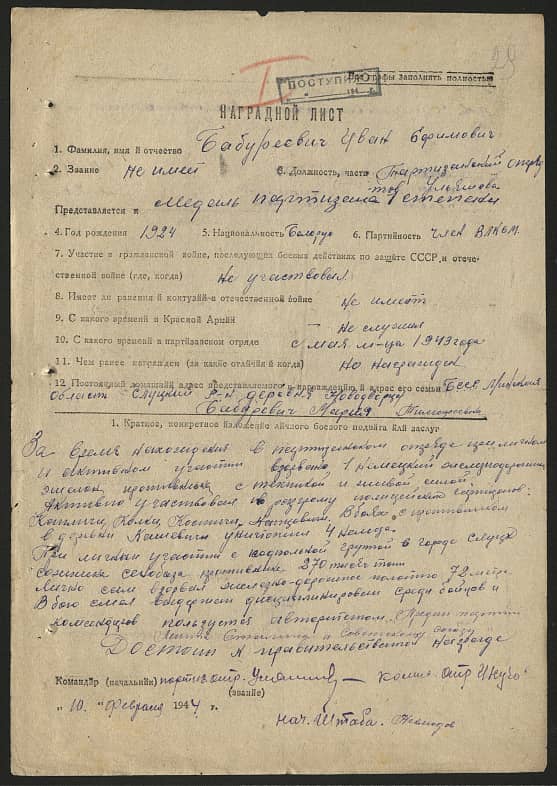 28
ПОСТУПИЛО
194 г.
Все графы заполнять полностью
НАГРАДНОЙ ЛИСТ
1. Фамилия, имя и отчество Бабуреевич Иван Ефимович
2. Звание не имеет 3. Должность, часть Партизанский отряд
Представляется к Медаль партизана I степени
4. Год рождения 1924 5. Национальность Белорус 6. Партийность член ВЛКСМ
7. Участие в гражданской войне, последующих боевых действиях по защите СССР и отече-
ственной войне (где, когда) Не участвовал
8. Имеет ли ранения и контузии в отечественной войне не имеет
9. С какого времени в Красной Армии Не служил
10. С какого времени в партизанском отряде с мая м-ца 1943 года
11. Чем ранее награжден (за какие отличия и когда) Не награжден
12 Постоянный домашний адрес представляемого к награждению и адрес его семьи БССР Минская
область Слуцкий р-н деревня Новодворцы
Бабуревич Мария Тимофеевна
1. Краткое, конкретное изложение личного боевого подвига или заслуг
За время нахождения в партизанском отряде при личном
и активном участии взорвано 1 немецкий железнодорожный
эшелон противника с техникой и живой силой.
Активно участвовал в разгроме полицейских гарнизонов:
В боях с противником
в деревни уничтожил 4 немца.
При личном участии с подпольной группой в городе Слуцке
сожжена сенобаза противника 270 тысяч тонн
лично сам взорвал железно-дорожное полотно 72 метра
В бою смел выдержан дисциплинирован среди бойцов и
командиров пользуется авторитетом. Предан партии
Ленина Сталина и Советскому Союзу
Достоин к правительственной награде
Командир (начальник) партиз. отр. комис. отр.
(звание)
„ 10 „ февраля 1944 г.
нач. Штаба.